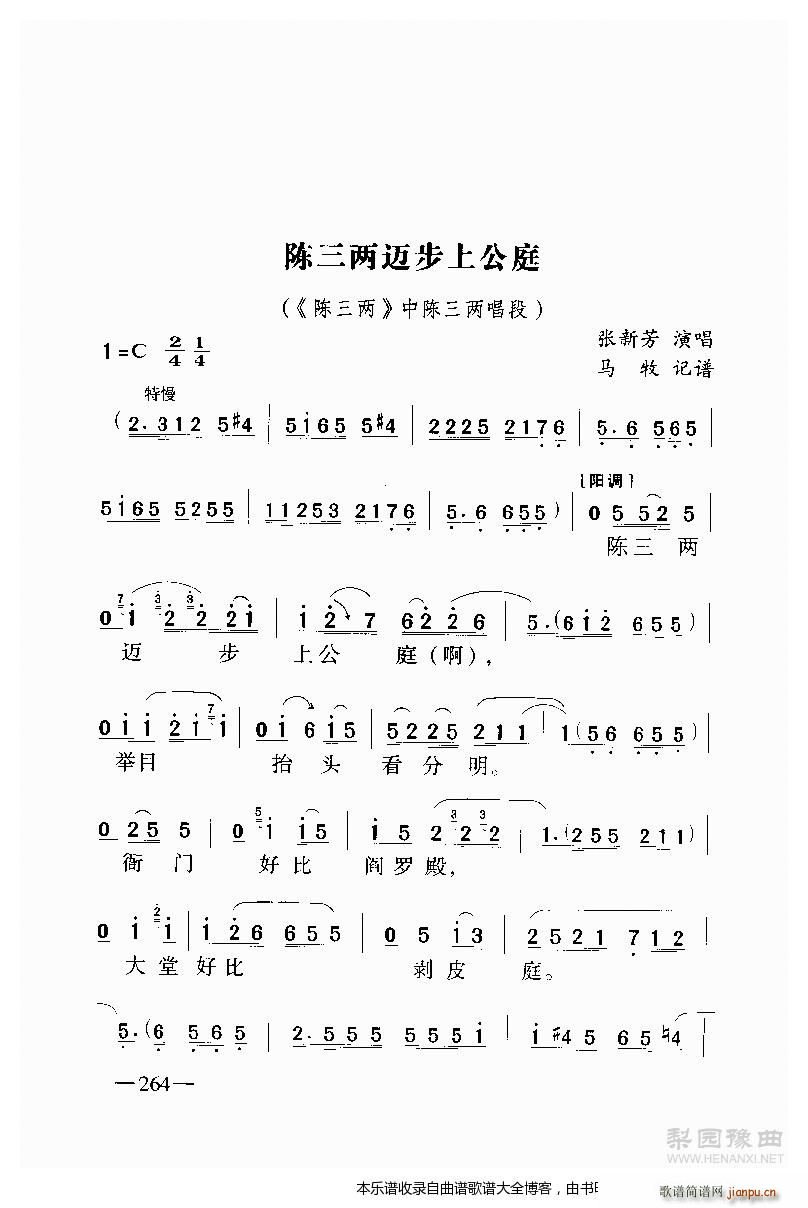 陈三两迈步上公庭
(《陈三两》中陈三两唱段)
1=C 2/4 1/4
张新芳 演唱
马 牧 记谱
特慢
(2.312 5#4 | 5165 5#4 | 2225 2176 | 5.6 565 |
[阳调]
5165 5255 | 11253 2176 | 5.6 655) | 05 52 5 |
陈三 两
0 1 2 2 21 | 1 2 7 6226 | 5.(612 655) |
迈 步 上公 庭(啊),
01 1 21 1 | 01 6 15 | 5225 211 | 1(56 655) |
举目 抬 头 看分 明。
0 25 5 | 0 1 15 | 1 5 2 2 2 | 1.(255 211) |
衙 门 好比 阎罗殿,
0 1 1 | 126 655 | 0 5 13 | 2521 712 |
大堂 好比 剥皮 庭。
5.(6 565 | 2.555 5551 | 1#45 65♮4 |
—264—
梨园豫曲
WWW.HENANXI.NET
本乐谱收录自曲谱歌谱大全博客,由书
歌谱简谱网
jianpu.cn